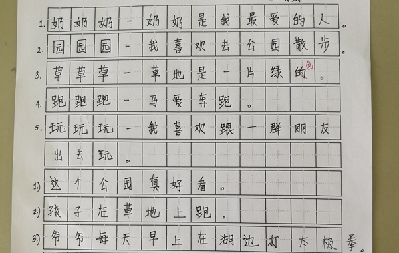 1. 奶奶奶 - 奶奶是我最爱的人。
2. 园园园 - 我喜欢去公园散步。
3. 草草草 - 草地是一片绿的。
4. 跑跑跑 - 马爱奔跑。
5. 玩玩玩 - 我喜欢跟一群朋友
出去玩。
1) 这个公园真好看。
2) 孩子在草地上跑。
3) 爷爷每天早上在湖边打太极拳